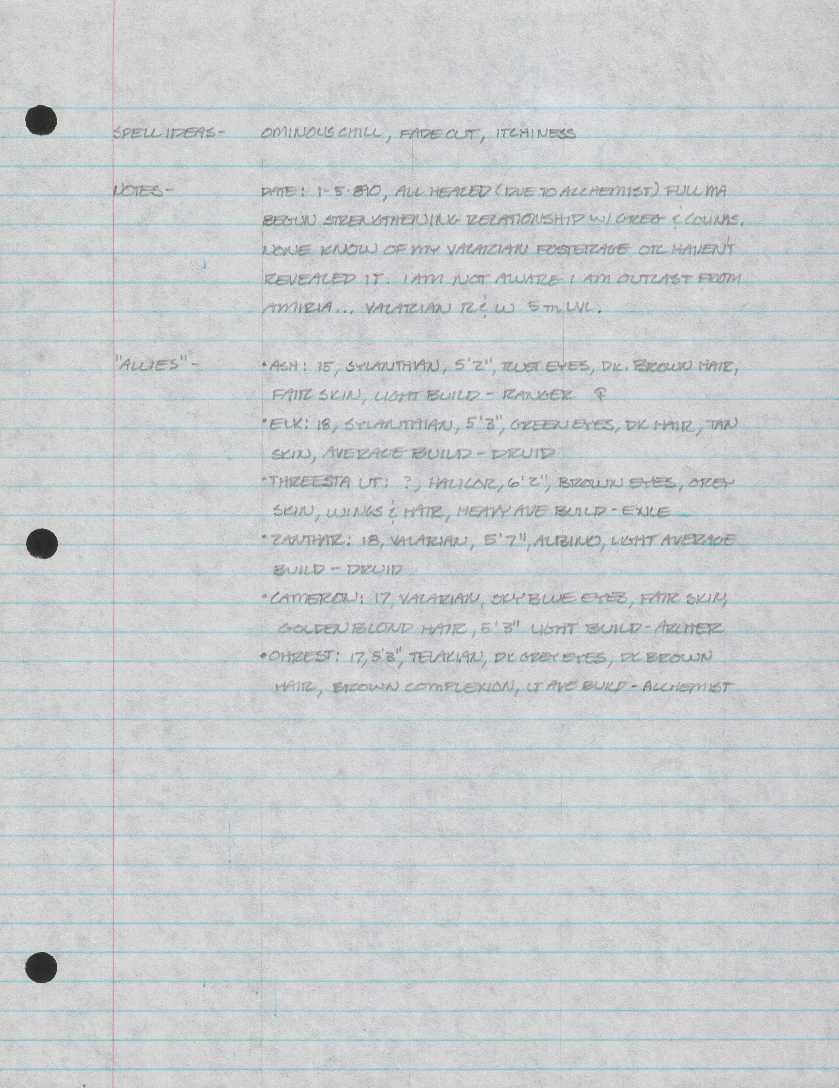 SPELL IDEAS- OMINOUS CHILL, FADE OUT, ITCHINESS
NOTES- DATE: 1-5-890, ALL HEALED (DUE TO ALCHEMIST) FULL MA
BEGUN STRENGTHENING RELATIONSHIP W/ GREG & COLINAS.
NONE KNOW OF MY VALARIAN FOSTERAGE OR HAVEN'T
REVEALED IT. I AM NOT AWARE I AM OUTCAST FROM
AMIRIA... VALARIAN R & W 5TH LVL.
"ALLIES"- •ASH: 15, SYLANTHIAN, 5'2", RUST EYES, DK. BROWN HAIR,
FAIR SKIN, LIGHT BUILD - RANGER ♀
•ELK: 18, SYLANTHIAN, 5'3", GREEN EYES, DK HAIR, TAN
SKIN, AVERAGE BUILD - DRUID
•THREESTA UT: ?, HALICOR, 6'2", BROWN EYES, GREY
SKIN, WINGS & HAIR, HEAVY AVE BUILD - EXILE
•ZANTHAR: 18, VALARIAN, 5'7", ALBINO, LIGHT AVERAGE
BUILD - DRUID
•CAMERON: 17, VALARIAN, SKY BLUE EYES, FAIR SKIN,
GOLDEN BLOND HAIR, 5'3" LIGHT BUILD - ARCHER
•OHREST: 17, 5'8", TELAKIAN, DK GREY EYES, DK BROWN
HAIR, BROWN COMPLEXION, LT AVE BUILD - ALCHEMIST